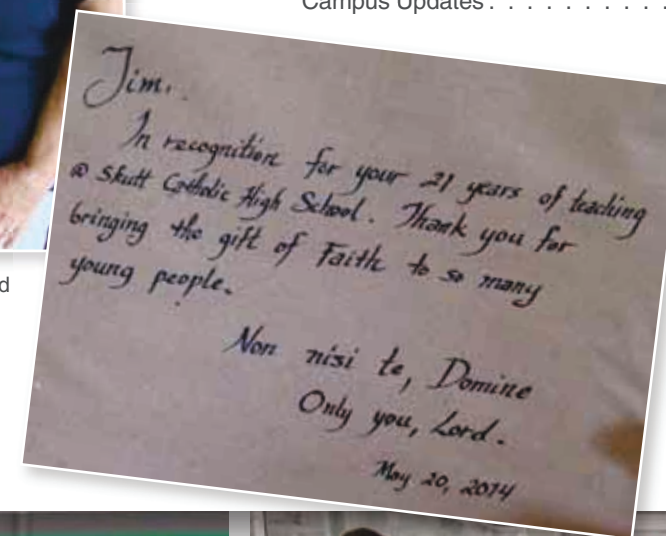 Campus Updates . . . . . . . . . .
d
Jim.
In recognition for your 21 years of teaching
@ Skutt Catholic High School. Thank you for
bringing the gift of Faith to so many
young people.
Non nisi te, Domine
Only you, Lord.
May 20, 2014